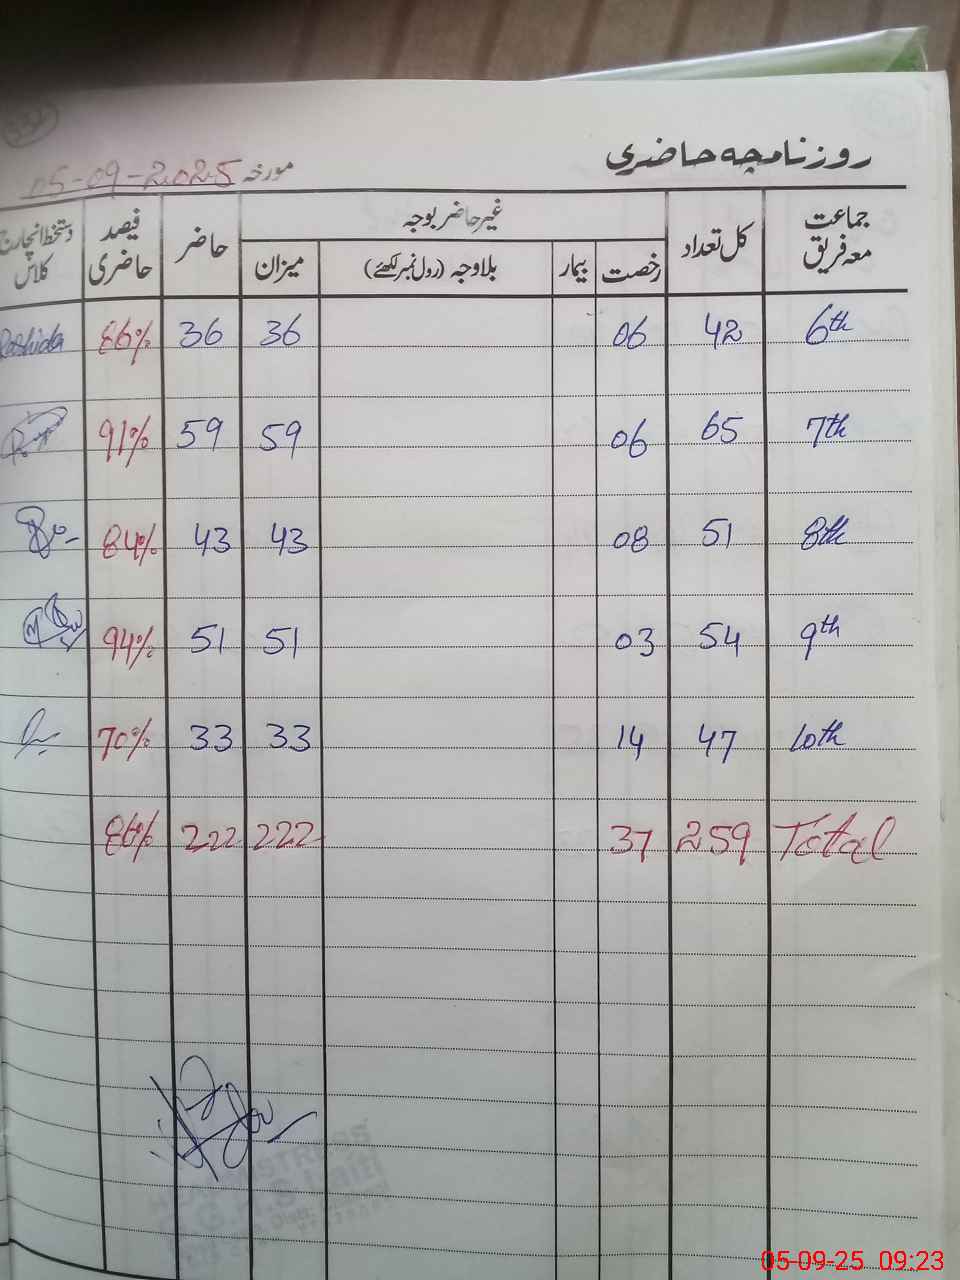 روزنامچہ حاضری
مورخہ 05-09-2025
جماعت معہ فریق کل تعداد غیر حاضر بوجہ حاضر فیصد حاضری دستخط انچارج کلاس
رخصت بیمار بلاوجہ (رول نمبر لکھئے) میزان
6th 42 06 36 36 86% Rashida
7th 65 06 59 59 91%
8th 51 08 43 43 84%
9th 54 03 51 51 94%
10th 47 14 33 33 70%
Total 259 37 222 222 86%
05-09-25 09:23